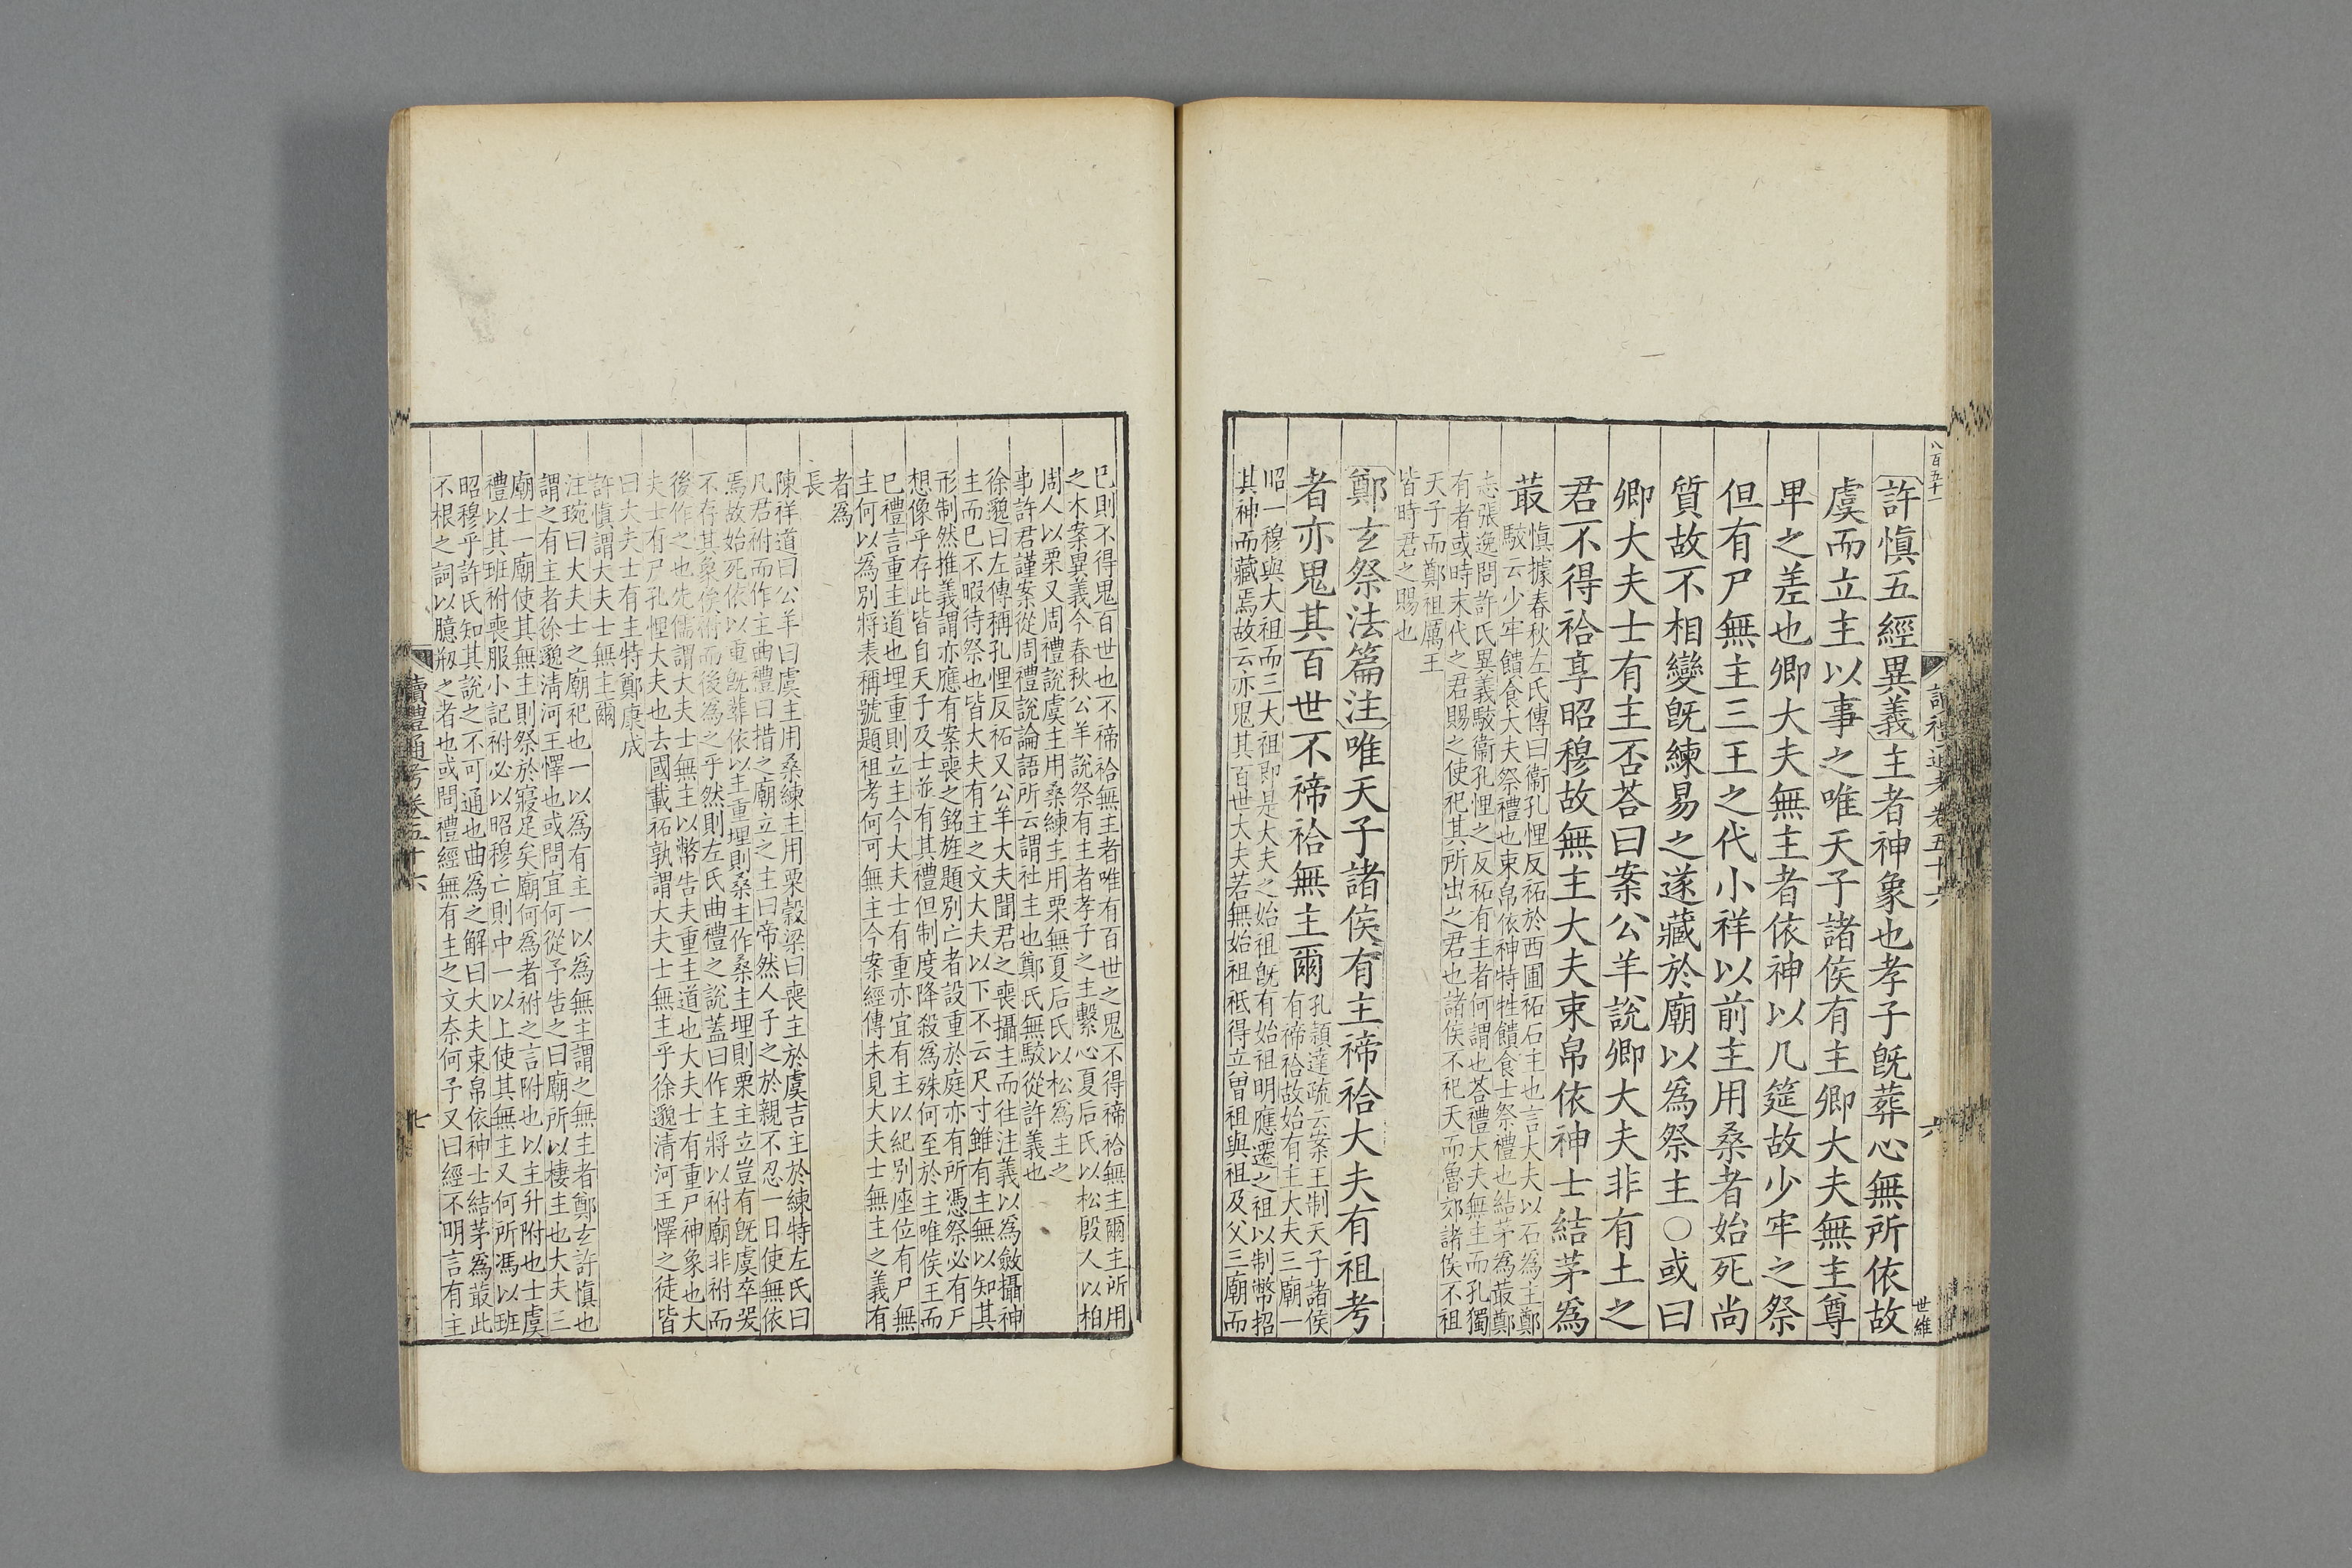 八百五十一
讀禮通考卷五十六
六
世維
許慎五經異義主者神象也孝子旣葬心無所依故
虞而立主以事之唯天子諸侯有主卿大夫無主尊
卑之差也卿大夫無主者依神以几筵故少牢之祭
但有尸無主三王之代小祥以前主用桑者始死尚
質故不相變旣練易之遂藏於廟以爲祭主○或曰
卿大夫士有主否荅曰案公羊說卿大夫非有土之
君不得祫享昭穆故無主大夫束帛依神士結茅爲
菆
慎據春秋左氏傳曰衞孔悝反祏於西圃祏石主也言大夫以石爲主鄭
駮云少牢饋食大夫祭禮也束帛依神特牲饋食士祭禮也結茅爲菆鄭
志張逸問許氏異義駮衞孔悝之反祏有主者何謂也荅禮大夫無主而孔獨
有者或時末代之君賜之使祀其所出之君也諸侯不祀天而魯郊諸侯不祖
天子而鄭祖厲王
皆時君之賜也
鄭玄祭法篇注唯天子諸侯有主禘祫大夫有祖考
者亦鬼其百世不禘祫無主爾
孔穎達疏云案王制天子諸侯
有禘祫故始有主大夫三廟一
昭一穆與大祖而三大祖即是大夫之始祖旣有始祖明應遷之祖以制幣招
其神而藏焉故云亦鬼其百世大夫若無始祖祗得立曽祖與祖及父三廟而
巳則不得鬼百世也不禘祫無主者唯有百世之鬼不得禘祫無主爾主所用
之木案異義今春秋公羊說祭有主者孝子之主繫心夏后氏以松殷人以柏
周人以栗又周禮說虞主用桑練主用栗無夏后氏以松爲主之
事許君謹案從周禮說論語所云謂社主也鄭氏無駮從許義也
徐邈曰左傳稱孔悝反祏又公羊大夫聞君之喪攝主而往注義以爲斂攝神
主而巳不暇待祭也皆大夫有主之文大夫以下不云尺寸雖有主無以知其
形制然推義謂亦應有案喪之銘旌題別亡者設重於庭亦有所憑祭必有尸
想像乎存此皆自天子及士並有其禮但制度降殺爲殊何至於主唯侯王而
巳禮言重主道也埋重則立主今大夫士有重亦宜有主以紀別座位有尸無
主何以爲別將表稱號題祖考何可無主今案經傳未見大夫士無主之義有
者爲
長
陳祥道曰公羊曰虞主用桑練主用栗穀梁曰喪主於虞吉主於練特左氏曰
凡君祔而作主曲禮曰措之廟立之主曰帝然人子之於親不忍一日使無依
焉故始死依以重旣葬依以主重埋則桑主作桑主埋則栗主立豈有旣虞卒哭
不存其象俟祔而後爲之乎然則左氏曲禮之說蓋曰作主將以祔廟非祔而
後作之也先儒謂大夫士無主以幣告夫重主道也大夫士有重尸神象也大
夫士有尸孔悝大夫也去國載祏孰謂大夫士無主乎徐邈清河王懌之徒皆
曰大夫士有主特鄭康成
許慎謂大夫士無主爾
汪琬曰大夫士之廟祀也一以爲有主一以爲無主謂之無主者鄭玄許慎也
謂之有主者徐邈清河王懌也或問宜何從予告之曰廟所以棲主也大夫三
廟士一廟使其無主則祭於寢足矣廟何爲者祔之言附也以主升附也士虞
禮以其班祔喪服小記祔必以昭穆亡則中一以上使其無主又何所馮以班
昭穆乎許氏知其說之不可通也曲爲之解曰大夫束帛依神士結茅爲菆此
不根之詞以臆刱之者也或問禮經無有主之文奈何予又曰經不明言有主
讀禮通考卷五十六
七